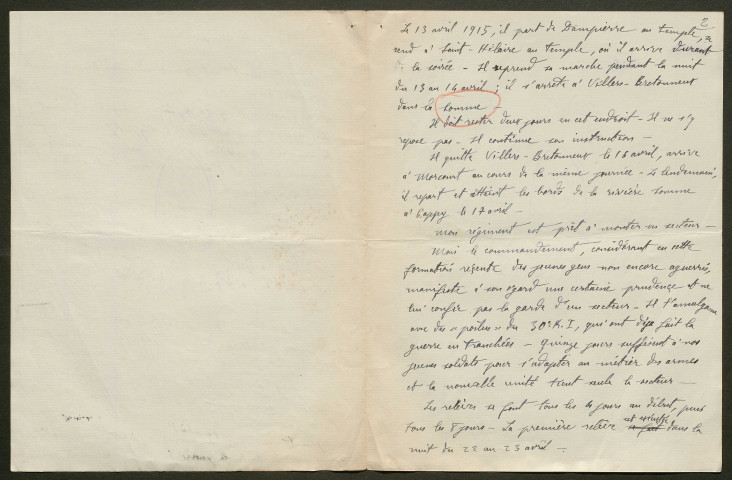 2
Le 13 avril 1915, il part de Dampierre au temple, se
rend à Saint-Hilaire au temple, où il arrive durant
la soirée - Il reprend sa marche pendant la nuit
du 13 au 14 avril ; il s'arrête à Villers-Bretonneux
dans la Somme -
Il doit rester deux jours en cet endroit - Il ne s'y
repose pas - Il continue son instruction -
Il quitte Villers-Bretonneux le 16 avril, arrive
à Morcourt au cours de la même journée - Le lendemain,
il repart et atteint les bords de la rivière Somme
à Cappy le 17 avril -
Mon régiment est prêt à monter en secteur -
Mais le commandement, considérant en cette
formation récente des jeunes gens non encore aguerris,
manifeste à son égard une certaine prudence et ne
lui confie pas la garde d'un secteur - Il l'amalgame
avec des « poilus » du 30e R.I, qui ont déjà fait la
guerre en tranchées - Quinze jours suffisent à nos
jeunes soldats pour s'adapter au métier des armes
et la nouvelle unité tient seule le secteur -
Les relèves se font tous les 4 jours au début, puis
tous les 8 jours - La première relève se fait est exécutée dans la
nuit du 22 au 23 avril -